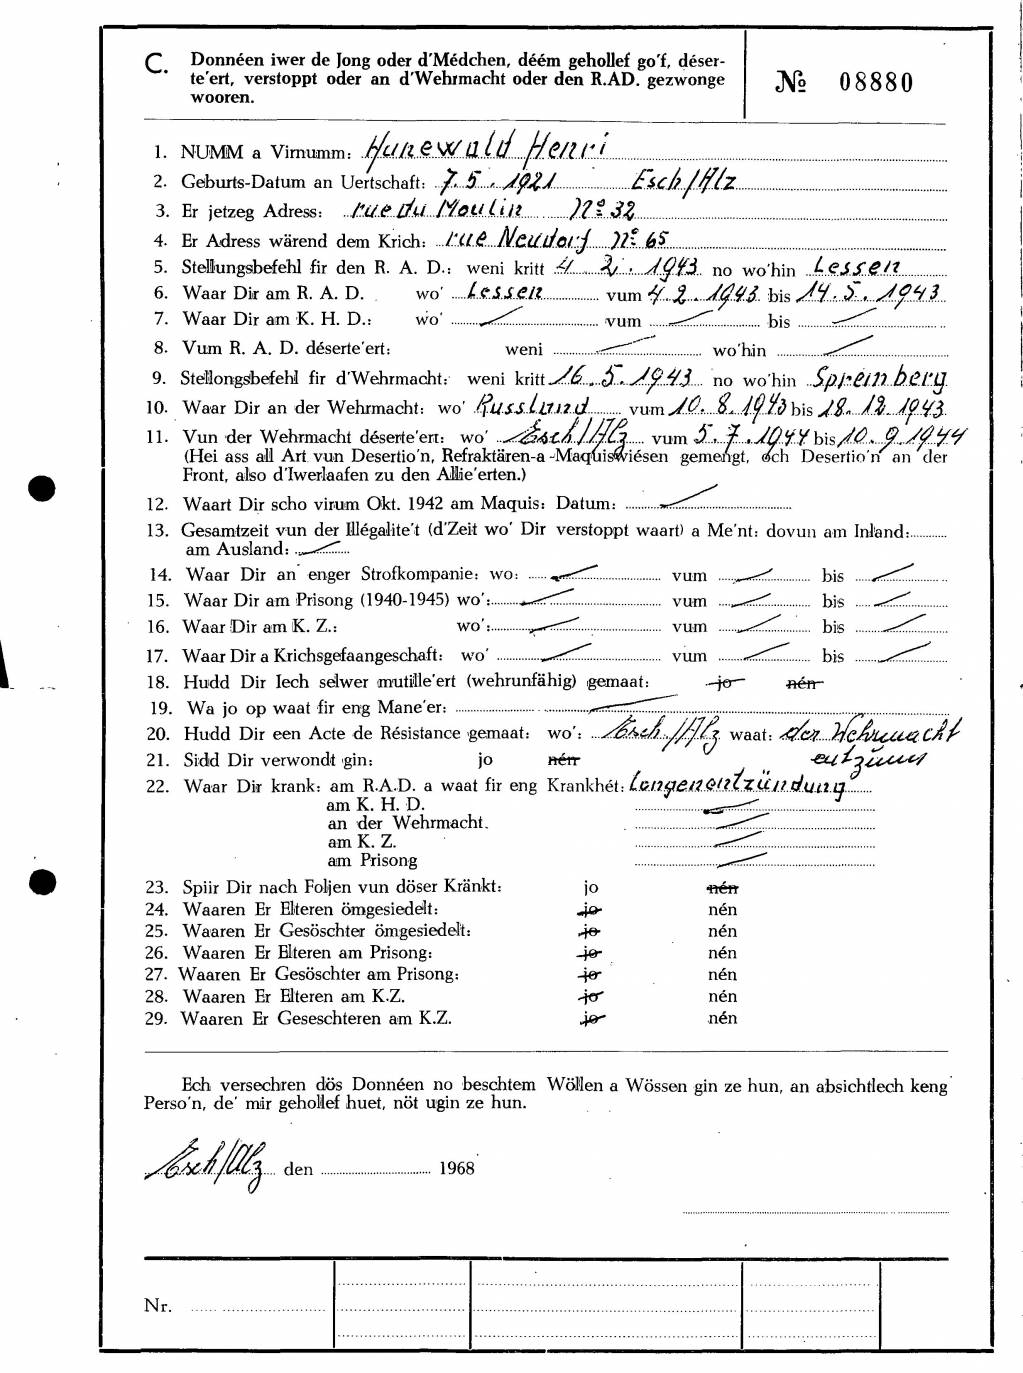 C. Donnéen iwer de Jong oder d'Médchen, déém gehollef go'f, déser-
te'ert, verstoppt oder an d'Wehrmacht oder den R.AD. gezwonge
wooren.
№ 08880
1. NUMM a Virnumm: Hunewald Henri
2. Geburts-Datum an Uertschaft: 7.5.1921 Esch/Alz
3. Er jetzeg Adress: rue du Moulin Nº 32
4. Er Adress wärend dem Krich: rue Neudorf Nº 65
5. Stellungsbefehl fir den R. A. D.: weni kritt 4.2.1943 no wo'hin Lessen
6. Waar Dir am R. A. D. wo' Lessen vum 4.2.1943 bis 14.5.1943
7. Waar Dir am K. H. D.: wo' vum bis
8. Vum R. A. D. déserte'ert: weni wo'hin
9. Stellongsbefehl fir d'Wehrmacht: weni kritt 16.5.1943 no wo'hin Spremberg
10. Waar Dir an der Wehrmacht: wo' Russland vum 10.8.1943 bis 18.12.1943
11. Vun der Wehrmacht déserte'ert: wo' Esch/Alz vum 5.7.1944 bis 10.9.1944
(Hei ass all Art vun Desertio'n, Refraktären-a-Maquiswiésen gemengt, och Desertio'n an der
Front, also d'Iwerlaafen zu den Allie'erten.)
12. Waart Dir scho virum Okt. 1942 am Maquis: Datum:
13. Gesamtzeit vun der Illégalite't (d'Zeit wo' Dir verstoppt waart) a Me'nt: dovun am Inland:
am Ausland:
14. Waar Dir an enger Strofkompanie: wo: vum bis
15. Waar Dir am Prisong (1940-1945) wo': vum bis
16. Waar Dir am K. Z.: wo': vum bis
17. Waar Dir a Krichsgefaangeschaft: wo' vum bis
18. Hudd Dir Iech selwer mutille'ert (wehrunfähig) gemaat: jo nén
19. Wa jo op waat fir eng Mane'er:
20. Hudd Dir een Acte de Résistance gemaat: wo': Esch/Alz waat: der Wehrmacht
entzunn
21. Sidd Dir verwondt gin: jo nén
22. Waar Dir krank: am R.A.D. a waat fir eng Krankhét: Longenentzündung
am K. H. D.
an der Wehrmacht.
am K. Z.
am Prisong
23. Spiir Dir nach Foljen vun döser Kränkt: jo nén
24. Waaren Er Elteren ömgesiedelt: jo nén
25. Waaren Er Gesöschter ömgesiedelt: jo nén
26. Waaren Er Elteren am Prisong: jo nén
27. Waaren Er Gesöschter am Prisong: jo nén
28. Waaren Er Elteren am K.Z. jo nén
29. Waaren Er Geseschteren am K.Z. jo nén
Ech versechren dös Donnéen no beschtem Wöllen a Wössen gin ze hun, an absichtlech keng
Perso'n, de' mir gehollef huet, nöt ugin ze hun.
Esch/Alz den 1968
Nr.